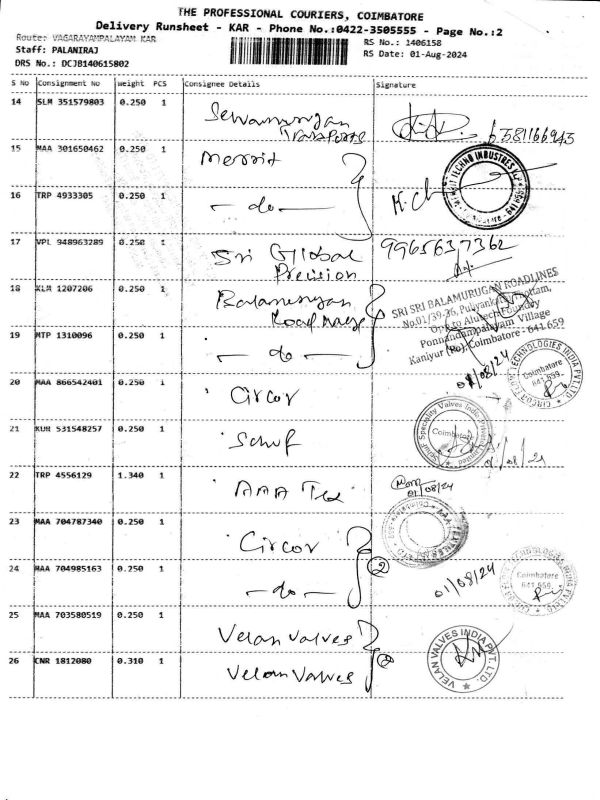 THE PROFESSIONAL COURIERS, COIMBATORE
Delivery Runsheet - KAR - Phone No.:0422-3505555 - Page No.:2
Route: VAGARAYAMPALAYAM KAR
RS No.: 1406158
Staff: PALANIRAJ
RS Date: 01-Aug-2024
DRS No.: DCJB140615802
S No Consignment No Weight PCS Consignee Details Signature
14 SLM 351579803 0.250 1 Selvamurugan Transports
15 MAA 301650462 0.250 1 Merit
16 TRP 4933305 0.250 1 - do -
17 VPL 948963289 0.250 1 Sri Global Precision 9965637362
18 KLM 1207206 0.250 1 Balamurugan Roadways
SRI SRI BALAMURUGAN ROADLINES
No.01/39-36, Thottam,
Opp to Alutech Foundry
Ponnandampalayam Village
Kaniyur (Po), Coimbatore - 641 659
19 MTP 1310096 0.250 1 - do -
01/08/24
CIRCOR TECHNOLOGIES INDIA PVT LTD
Coimbatore
20 MAA 866542401 0.250 1 Circor
21 KUR 531548257 0.250 1 Schuf
Speciality Valves India Private Limited
Coimbatore
01/08/24
22 TRP 4556129 1.340 1 AAA Tex
01/08/24
23 MAA 704787340 0.250 1 Circor
24 MAA 704985163 0.250 1 - do - 2
01/08/24
Coimbatore
25 MAA 703580519 0.250 1 Velan Valves
VELAN VALVES INDIA PVT. LTD.
26 CNR 1812080 0.310 1 Velan Valves 2